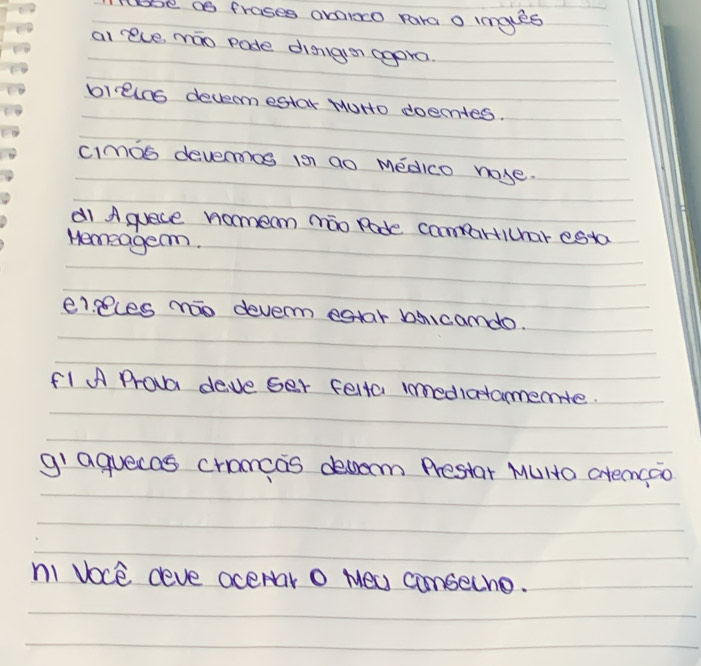 as frases abaixo para o inglês
a) ele não pode dirigir agora.
b) elas devem estar muito doentes.
c) nós devemos ir ao médico hoje.
d) Aquele homem não pode compartilhar esta
Mensagem.
e) eles não devem estar brincando.
f) A Prova deve ser feita imediatamente.
g) aquelas crianças devem Prestar Muito atenção
h) Você deve aceitar o Meu conselho.